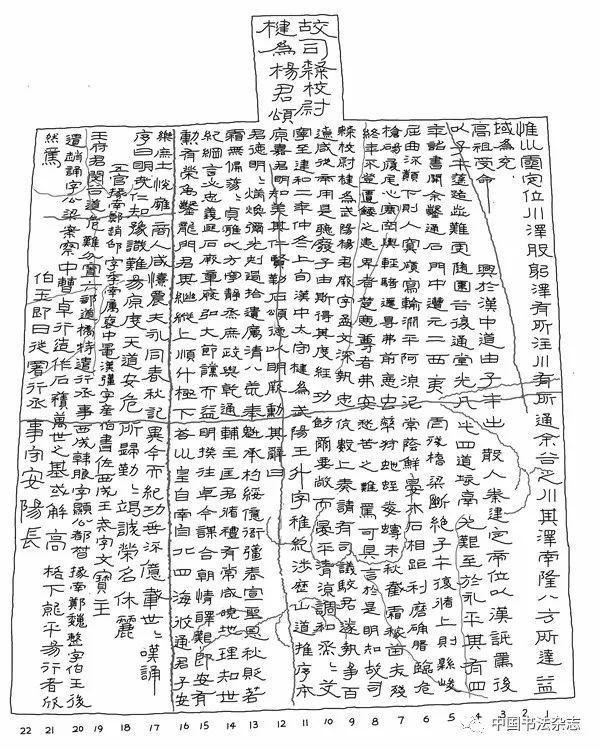 故司隸校尉
楗為楊君頌
惟巛靈定位川澤股躬澤有所注川有所通余谷之川其澤南隆八方所達益
域為充
高祖受命 興於漢中道由子午出散入秦建定帝位以漢詆焉後
以子午塗路歰難更隨圍谷復通堂光凡此四道垓鬲尤艱至於永平其有四
年詔書開余鑿通石門中遭元二西夷虐殘橋梁斷絕子午復循上則縣峻
屈曲流顛下則入冥廎寫輸淵平阿淖泥常蔭鮮晏木石相距利磨确磐臨危
槍碭履尾心寒空輿輕騎遰㝵弗前惡虫䘍狩虵蛭毒蟃未秋截霜稼苗夭殘
終年不登匱餧之患卑者楚惡尊者弗安愁苦之難焉可具言於是明知故司
隸校尉楗為武陽楊君厥字孟文深執忠伉數上奏請有司議駮君遂執爭百
遼咸從帝用是聽廢子由斯得其度經功飭爾要敞而晏平清涼調和烝烝艾
寧至建和二年仲冬上旬漢中大守楗為武陽王升字稚紀涉歷山道推序本
原嘉君明知美其仁賢勒石頌德以明厥勳其辭曰
君德明明炳煥彌光刺過拾遺厲清八荒奉魁承杓綏億衙彊春宣聖恩秋貶若
霜無偏蕩蕩貞雅以方寧靜烝庶政與乾通輔主匡君循禮有常咸曉地理知世
紀綱言必忠義匪石厥章恢弘大節讜而益明揆往卓今謀合朝情醳艱即安有
勳有榮禹鑿龍門君其繼縱上順斗極下荅坤皇自南自北四海攸通君子安
樂庶士悅雍商人咸憘農夫永同春秋記異今而紀功垂流億載世世嘆誦
序曰明哉仁知豫識難易原度天道安危所歸勤勤竭誠榮名休麗
五官掾南鄭趙邵字季南屬褒中晁漢彊字產伯書佐西成王戒字文寶主
王府君閔谷道危難分置六部道橋特遣行丞事西成韓朖字顯公都督掾南鄭魏整字伯玉後
遣趙誦字公梁案察中曹卓行造作石積萬世之基或解高格下就平易行者欣
然焉 伯玉即日徙署行丞事守安陽長
22 21 20 19 18 17 16 15 14 13 12 11 10 9 8 7 6 5 4 3 2 1
中国书法杂志